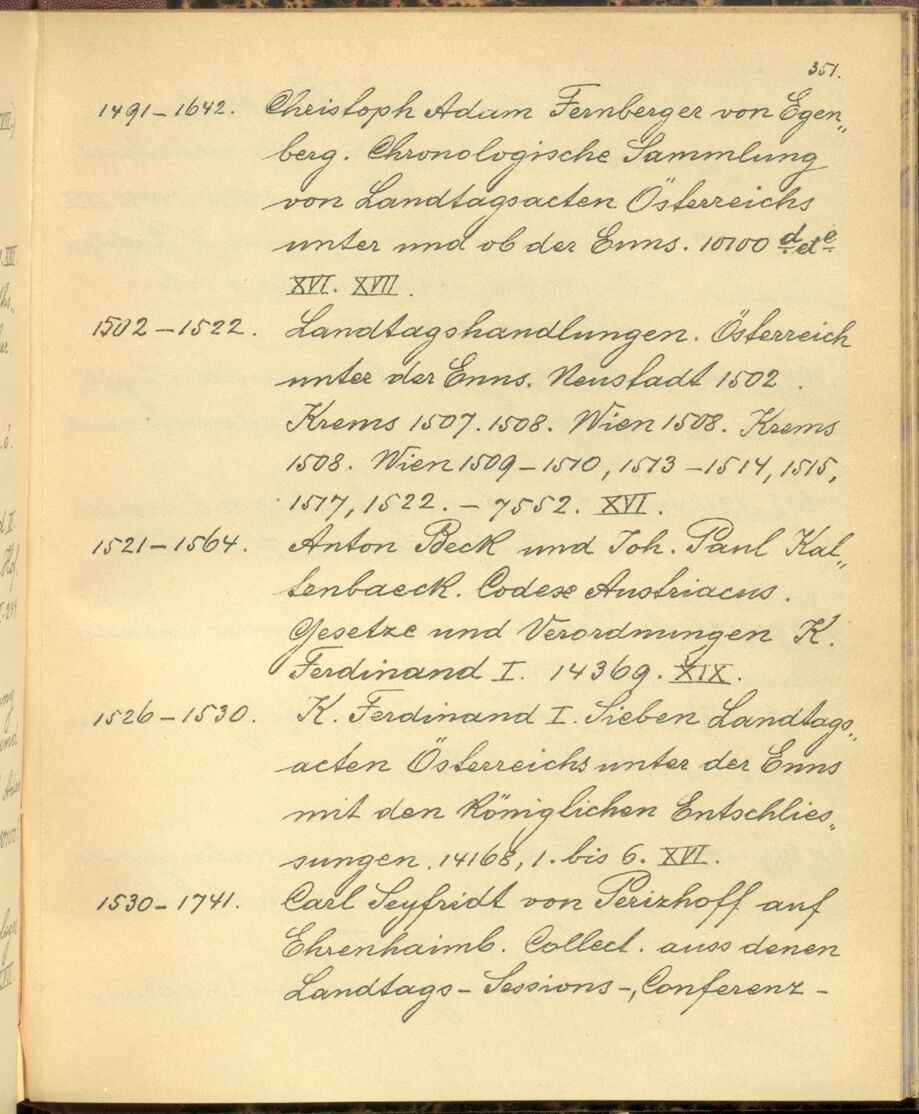 351.
1491–1642. Christoph Adam Fernberger von Egen„
berg. Chronologische Sammlung
von Landtagsacten Österreichs
unter und ob der Enns. 10100 d et e
XVI. XVII.
1502–1522. Landtagshandlungen. Österreich
unter der Enns. Neustadt 1502.
Krems 1507. 1508. Wien 1508. Krems
1508. Wien 1509–1510, 1513–1514, 1515,
1517, 1522. – 7552. XVI.
1521–1564. Anton Beck und Joh. Paul Kal„
tenbaeck. Codex Austriacus.
Gesetze und Verordnungen K.
Ferdinand I. 14369. XIX.
1526–1530. K. Ferdinand I. Sieben Landtags„
acten Österreichs unter der Enns
mit den Königlichen Entschlies„
sungen. 14168, 1. bis 6. XVI.
1530–1741. Carl Seyfridt von Perizhoff auf
Ehrenhaimb. Collect. auss denen
Landtags- Sessions-, Conferenz-